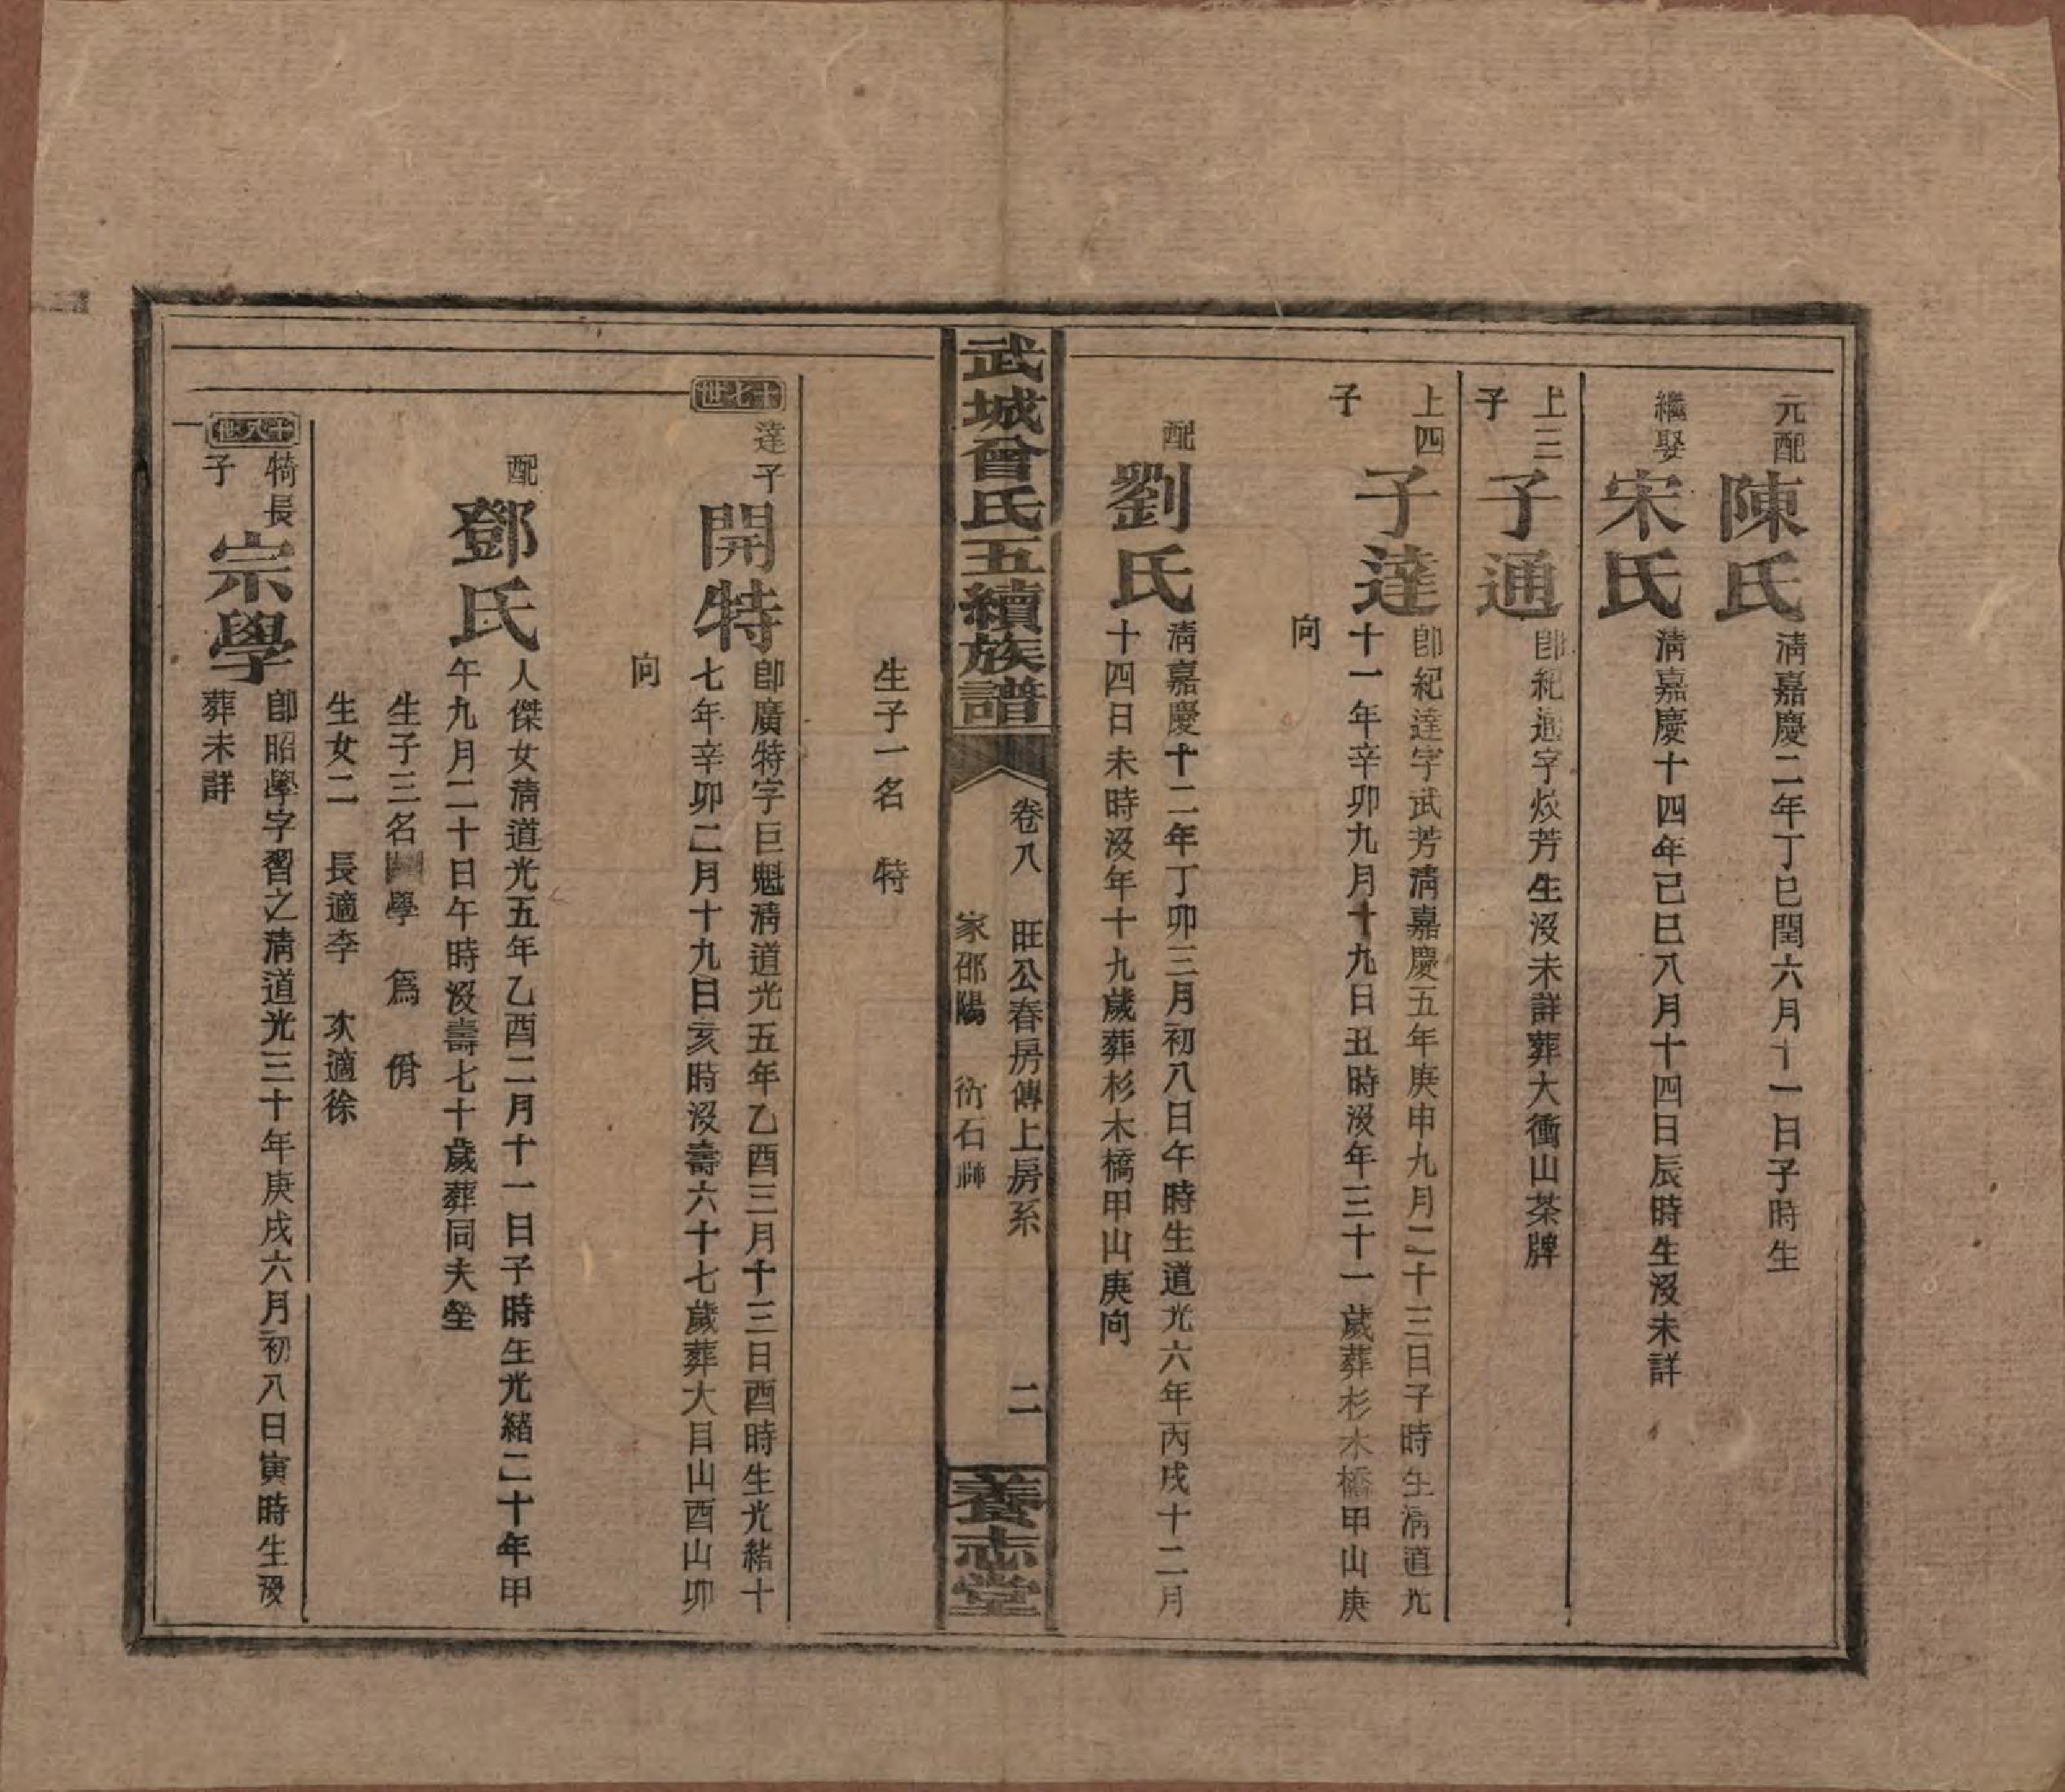 元配
陳氏
淸嘉慶二年丁巳閏六月十一日子時生
繼娶
宋氏
淸嘉慶十四年己巳八月十四日辰時生沒未詳
上三
子
子通
卽紀通字炇芳生沒未詳葬大衝山茶牌
上四
子
子達
卽紀達字武芳淸嘉慶五年庚申九月二十三日子時生淸道光
十一年辛卯九月十九日丑時沒年三十一歲葬杉木橋甲山庚
向
配
劉氏
淸嘉慶十二年丁卯三月初八日午時生道光六年丙戌十二月
十四日未時沒年十九歲葬杉木橋甲山庚向
武城曾氏五續族譜
卷八 旺公春房傳上房系 二
家邵陽 衍石
養志堂
生子一名 特
十七世
達子
開特
卽廣特字巨魁淸道光五年乙酉三月十三日酉時生光緒十
七年辛卯二月十九日亥時沒壽六十七歲葬大目山酉山卯
向
配
鄧氏
人傑女淸道光五年乙酉二月十一日子時生光緒二十年甲
午九月二十日午時沒壽七十歲葬同夫塋
生子三名 學 爲 佾
生女二 長適李 次適徐
十八世
特長
子
宗學
卽昭學字習之淸道光三十年庚戌六月初八日寅時生歿
葬未詳